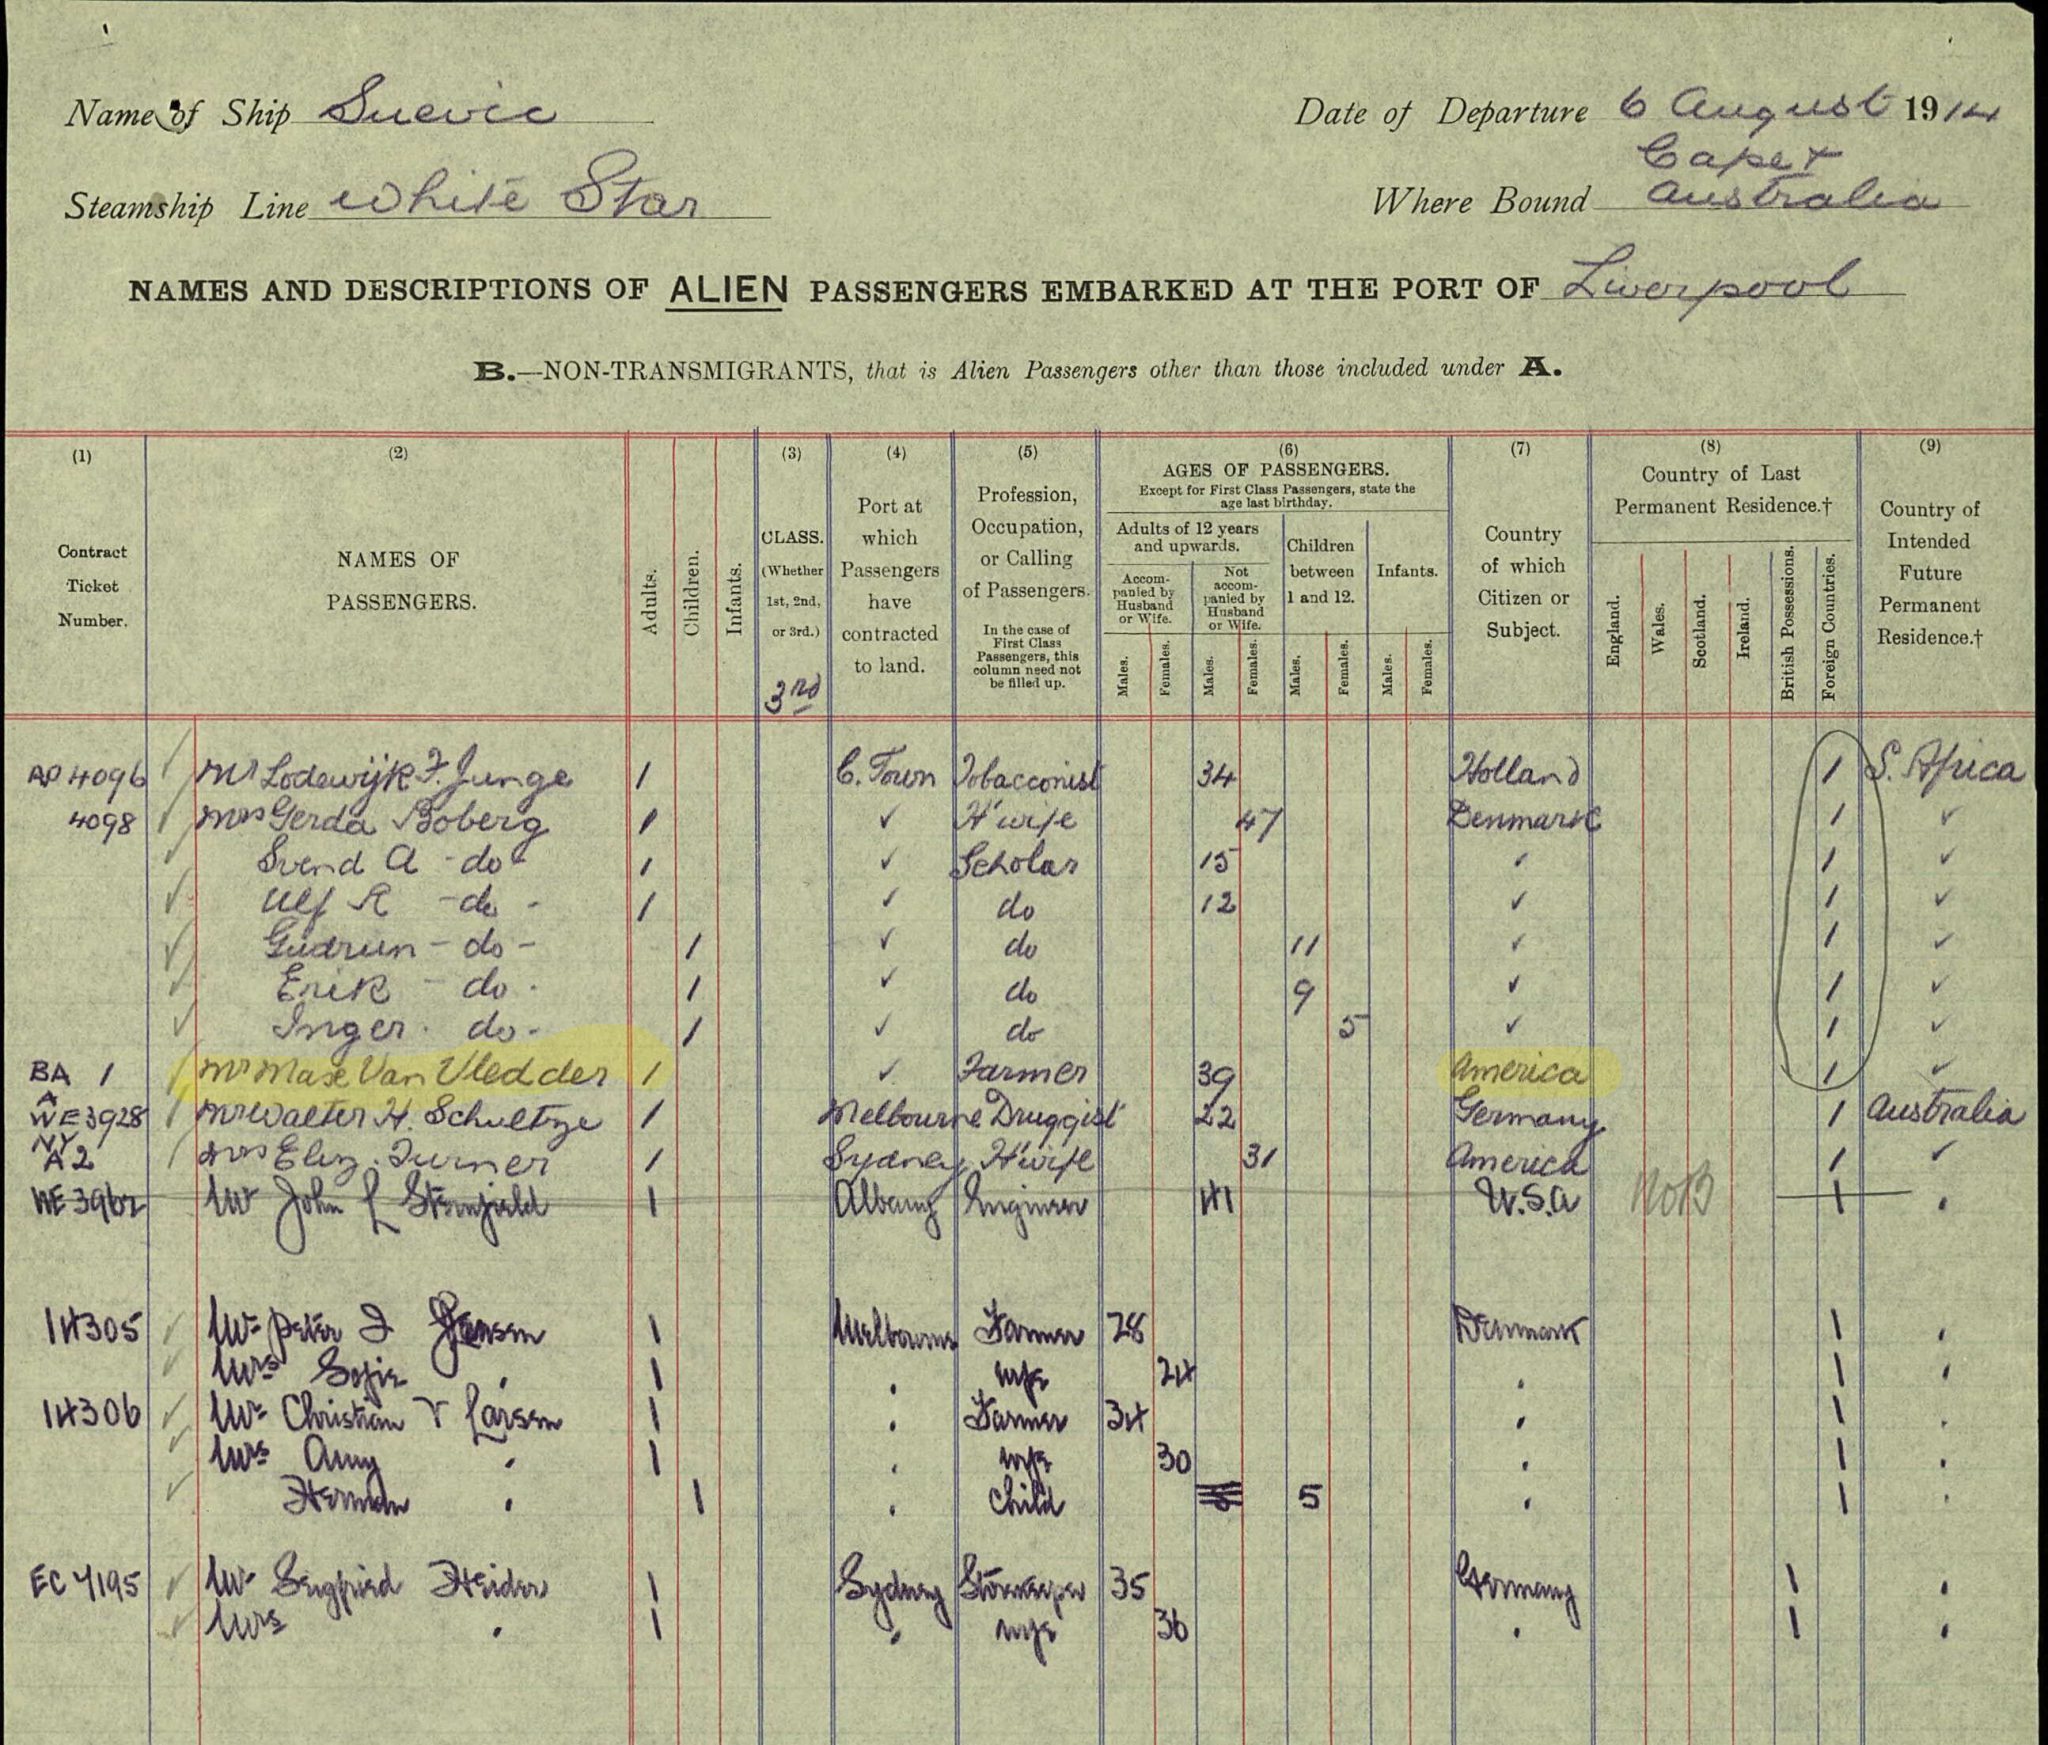 Name of Ship Suevic
Date of Departure 6 August 1914
Steamship Line White Star
Where Bound Cape + Australia
NAMES AND DESCRIPTIONS OF ALIEN PASSENGERS EMBARKED AT THE PORT OF Liverpool
B.—NON-TRANSMIGRANTS, that is Alien Passengers other than those included under A.
(1) Contract Ticket Number.
(2) NAMES OF PASSENGERS.
Adults. Children. Infants.
(3) CLASS. (Whether 1st, 2nd, or 3rd.) 3rd
(4) Port at which Passengers have contracted to land.
(5) Profession, Occupation, or Calling of Passengers. In the case of First Class Passengers, this column need not be filled up.
(6) AGES OF PASSENGERS. Except for First Class Passengers, state the age last birthday.
Adults of 12 years and upwards. Children between 1 and 12. Infants.
Accompanied by Husband or Wife. Not accompanied by Husband or Wife.
Males. Females. Males. Females. Males. Females. Males. Females.
(7) Country of which Citizen or Subject.
(8) Country of Last Permanent Residence.†
England. Wales. Scotland. Ireland. British Possessions. Foreign Countries.
(9) Country of Intended Future Permanent Residence.†
AP 4096 Mr Lodewijk F. Junge 1 C. Town Tobacconist 34 Holland 1 S. Africa
4098 Mrs Gerda Boberg 1 ✓ H'wife 47 Denmark 1 ✓
Svend A - do - 1 ✓ Scholar 15 ✓ 1 ✓
Ulf R - do - 1 ✓ do 12 ✓ 1 ✓
Gudrun - do - 1 ✓ do 11 ✓ 1 ✓
Erik - do - 1 ✓ do 9 ✓ 1 ✓
Inger - do - 1 ✓ do 5 ✓ 1 ✓
BA 1 Mr Mase Van Vledder 1 ✓ Farmer 39 America 1 ✓
WE 3928 Mr Walter H. Schultze 1 Melbourne Druggist 22 Germany 1 Australia
NY A2 Mrs Eliz. Turner 1 Sydney H'wife 31 America 1 ✓
WE 3962 Mr John L 1 Albany Engineer 41 U.S.A 1 "
14305 Mr Peter J Jensen 1 Melbourne Farmer 28 Denmark 1 "
Mrs Sofie " 1 " wife 24 " 1 "
14306 Mr Christian V Larsen 1 " Farmer 34 " 1 "
Mrs Amy " 1 " wife 30 " 1 "
Herman " 1 " Child 5 " 1 "
EC 4195 Mr Seigfried Heider 1 Sydney Storekeeper 35 Germany 1 "
Mrs " 1 " wife 36 " 1 "